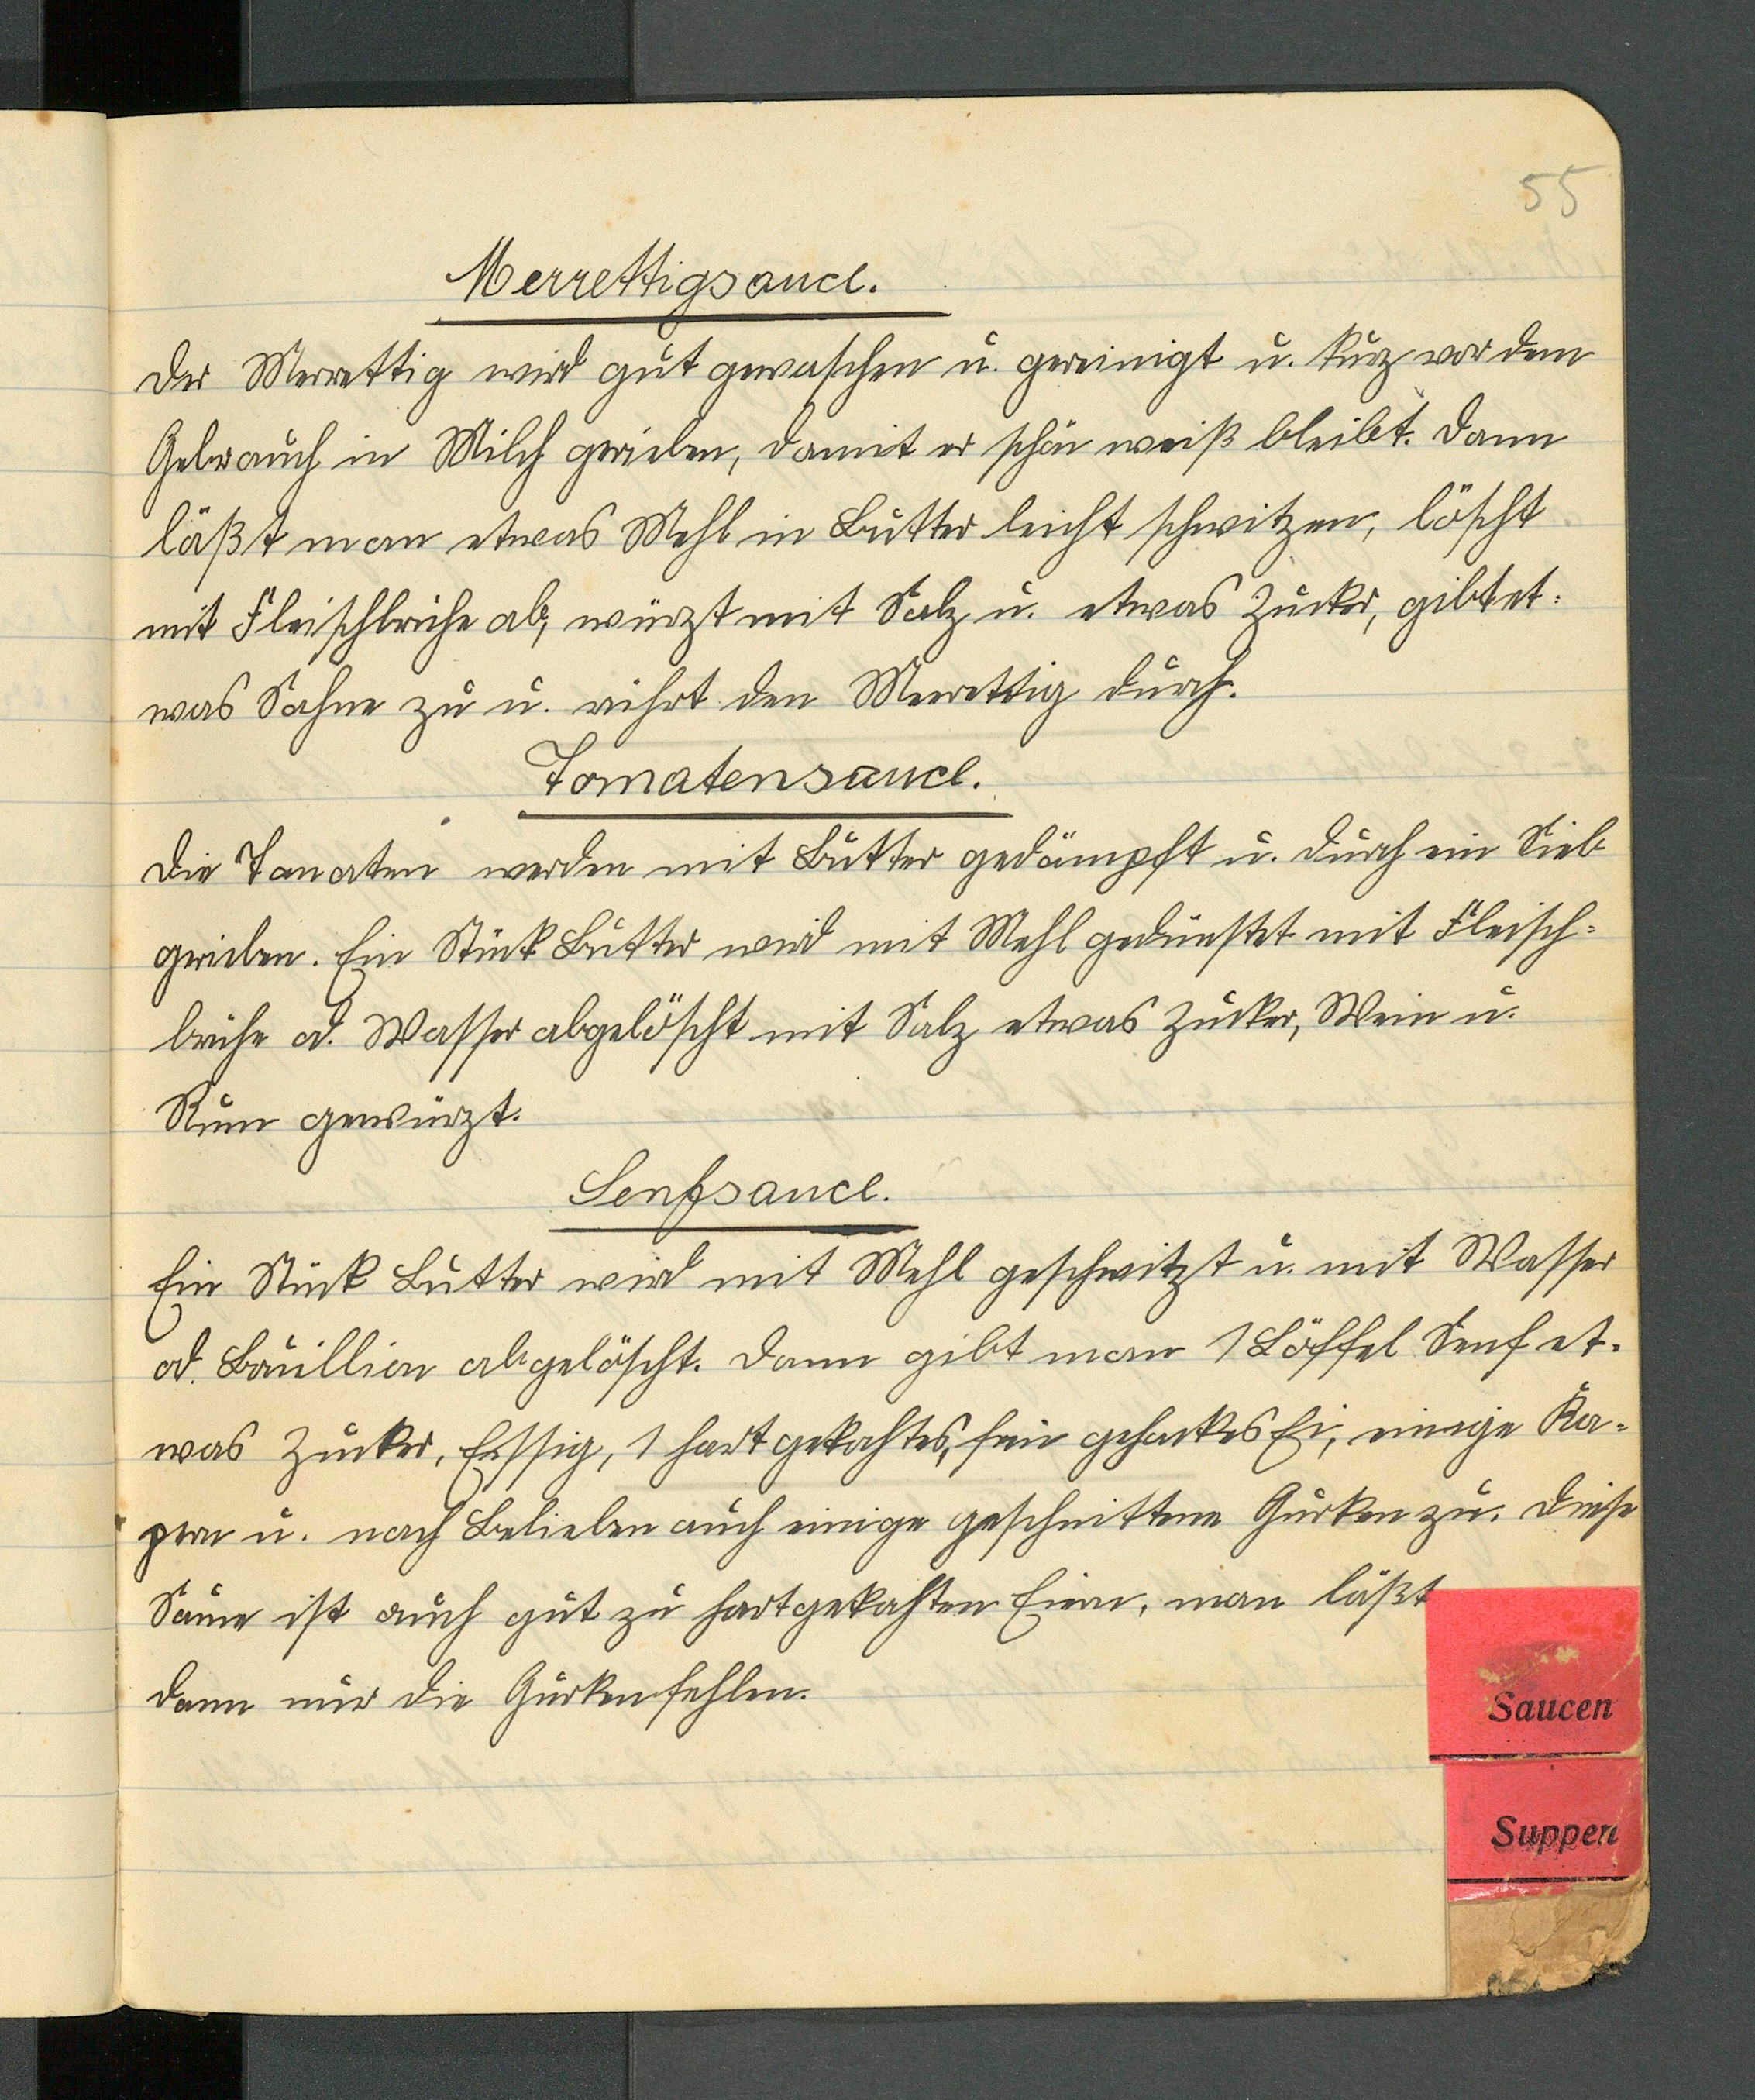 55
Merrettigsauce.
Der Merrettig wird gut gewaschen u. gereinigt u. kurz vor dem
Gebrauch in Milch gerieben, damit er schön weiß bleibt. Dann
läßt man etwas Mehl in Butter leicht schwitzen, löscht
mit Fleischbrühe ab, würzt mit Salz u. etwas Zucker, gibt et=
was Sahne zu u. rührt den Meerettig durch.
Tomatensauce.
Die Tomaten werden mit Butter gedämpft u. durch ein Sieb
gerieben. Ein Stück Butter wird mit Mehl gedünstet mit Fleisch=
brühe od. Wasser abgelöscht mit Salz etwas Zucker, Wein u.
Rum gewürzt.
Senfsauce.
Ein Stück Butter wird mit Mehl geschwitzt u. mit Wasser
od. Bouillion abgelöscht. Dann gibt man 1 Löffel Senf et=
was Zucker, Essig, 1 hart gekochtes, fein gehacktes Ei, einige Ka=
pern u. nach Belieben auch einige geschnittene Gurken zu. Diese
Sauce ist auch gut zu hartgekochten Eiern, man läßt
dann nur die Gurken fehlen.
Saucen
Suppen